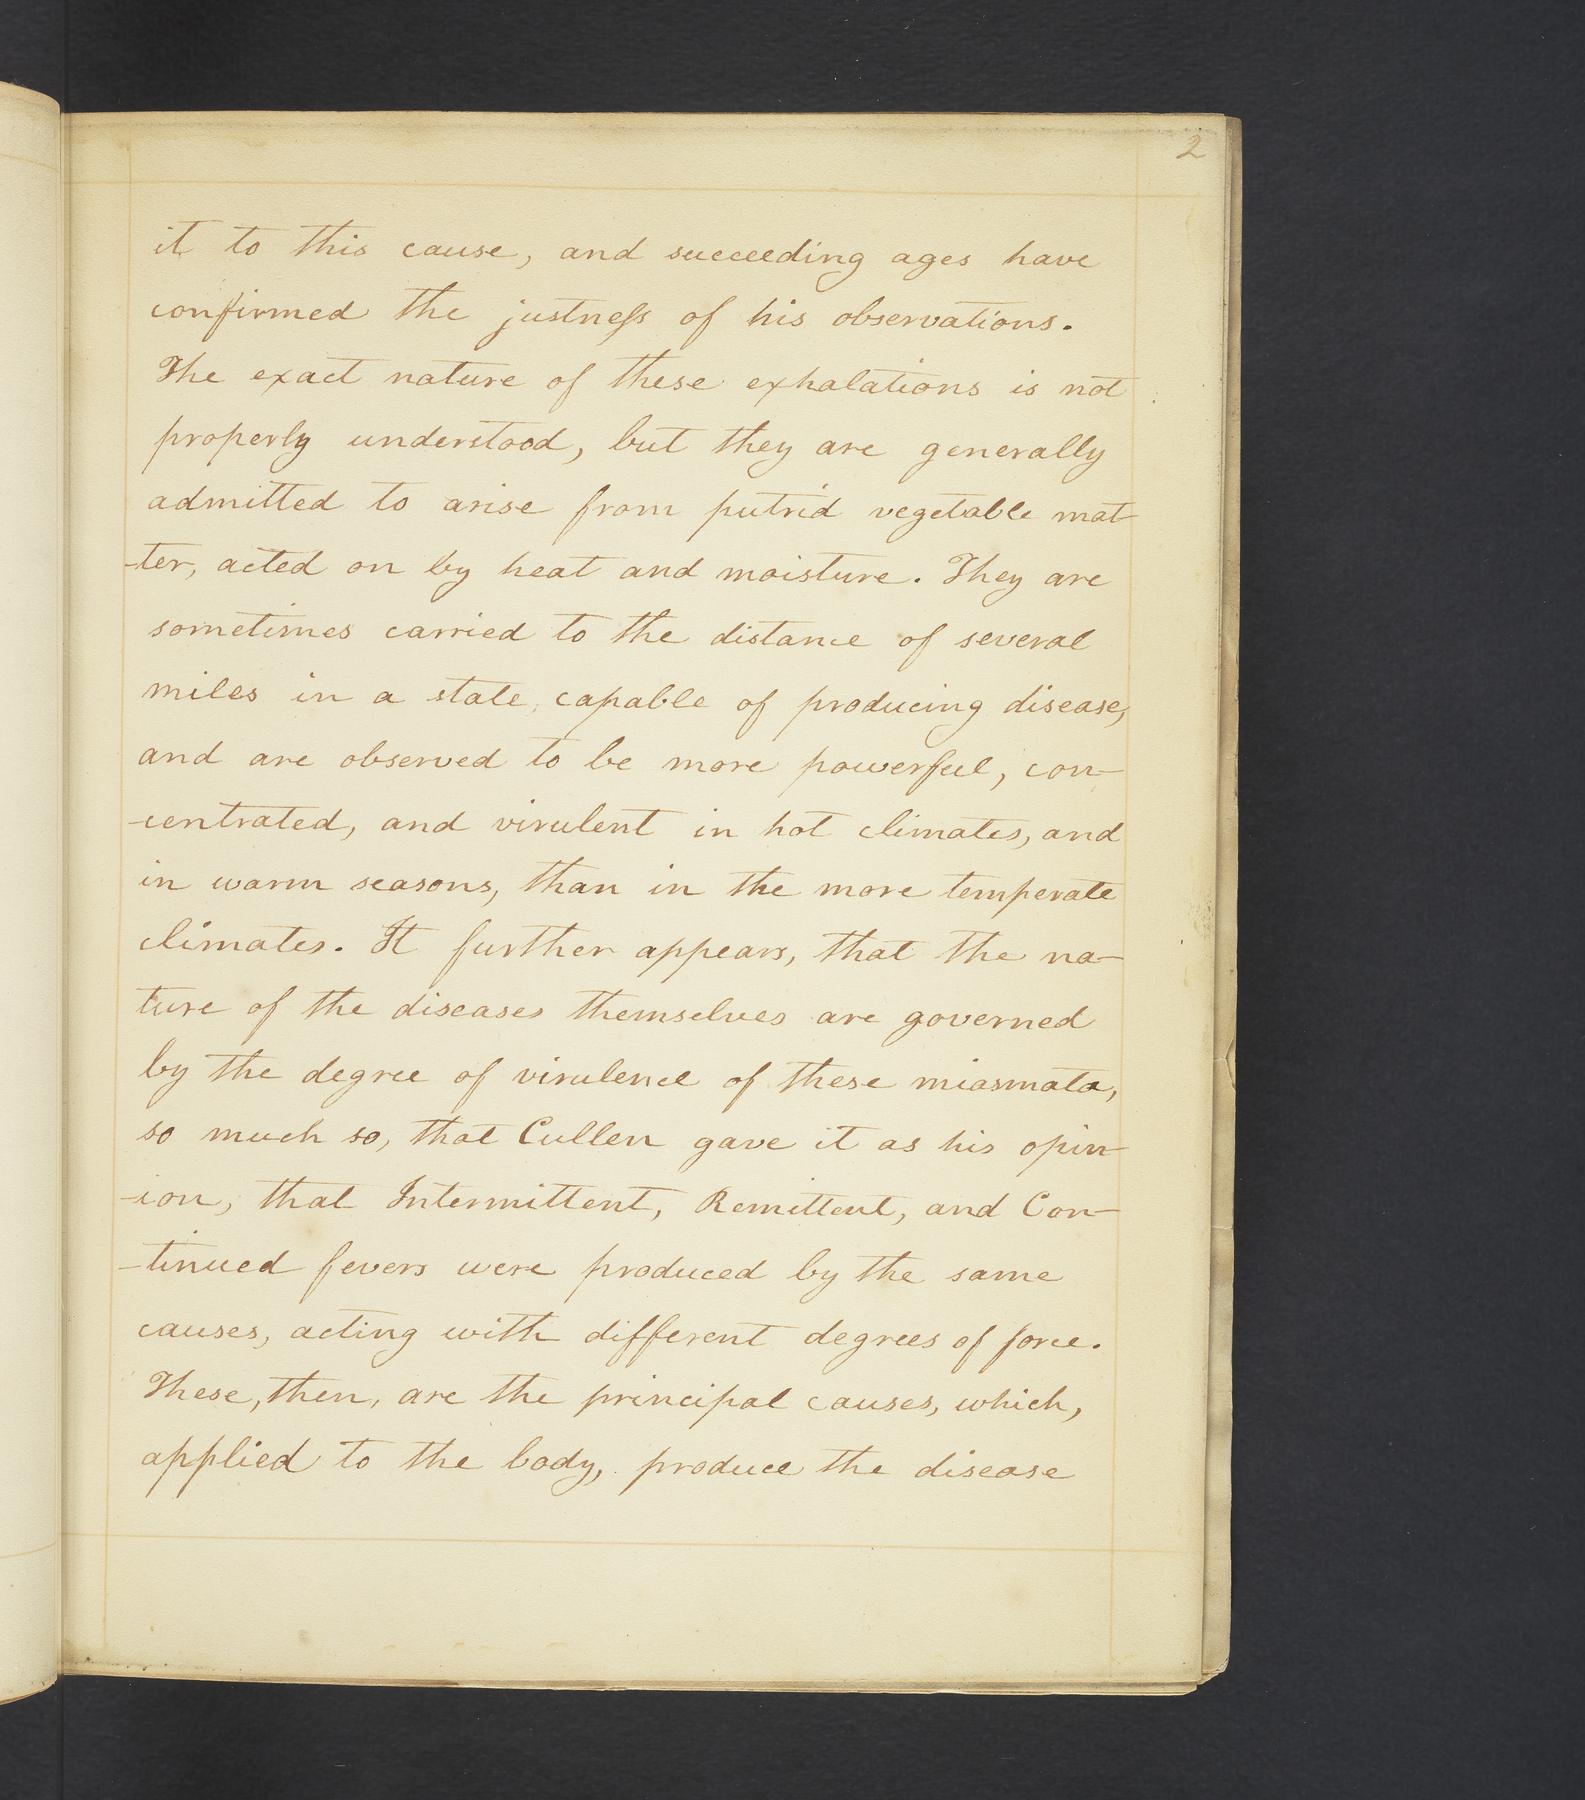 2
it to this cause, and succeeding ages have
confirmed the justneſs of his observations.
The exact nature of these exhalations is not
properly understood, but they are generally
admitted to arise from putrid vegetable mat-
-ter, acted on by heat and moisture. They are
sometimes carried to the distance of several
miles in a state, capable of producing disease,
and are observed to be more powerful, con-
-centrated, and virulent in hot climates, and
in warm seasons, than in the more temperate
climates. It further appears, that the na-
ture of the diseases themselves are governed
by the degree of virulence of these miasmata,
so much so, that Cullen gave it as his opin-
-ion, that Intermittent, Remittent, and Con-
-tinued fevers were produced by the same
causes, acting with different degrees of force.
These, then, are the principal causes, which,
applied to the body, produce the disease